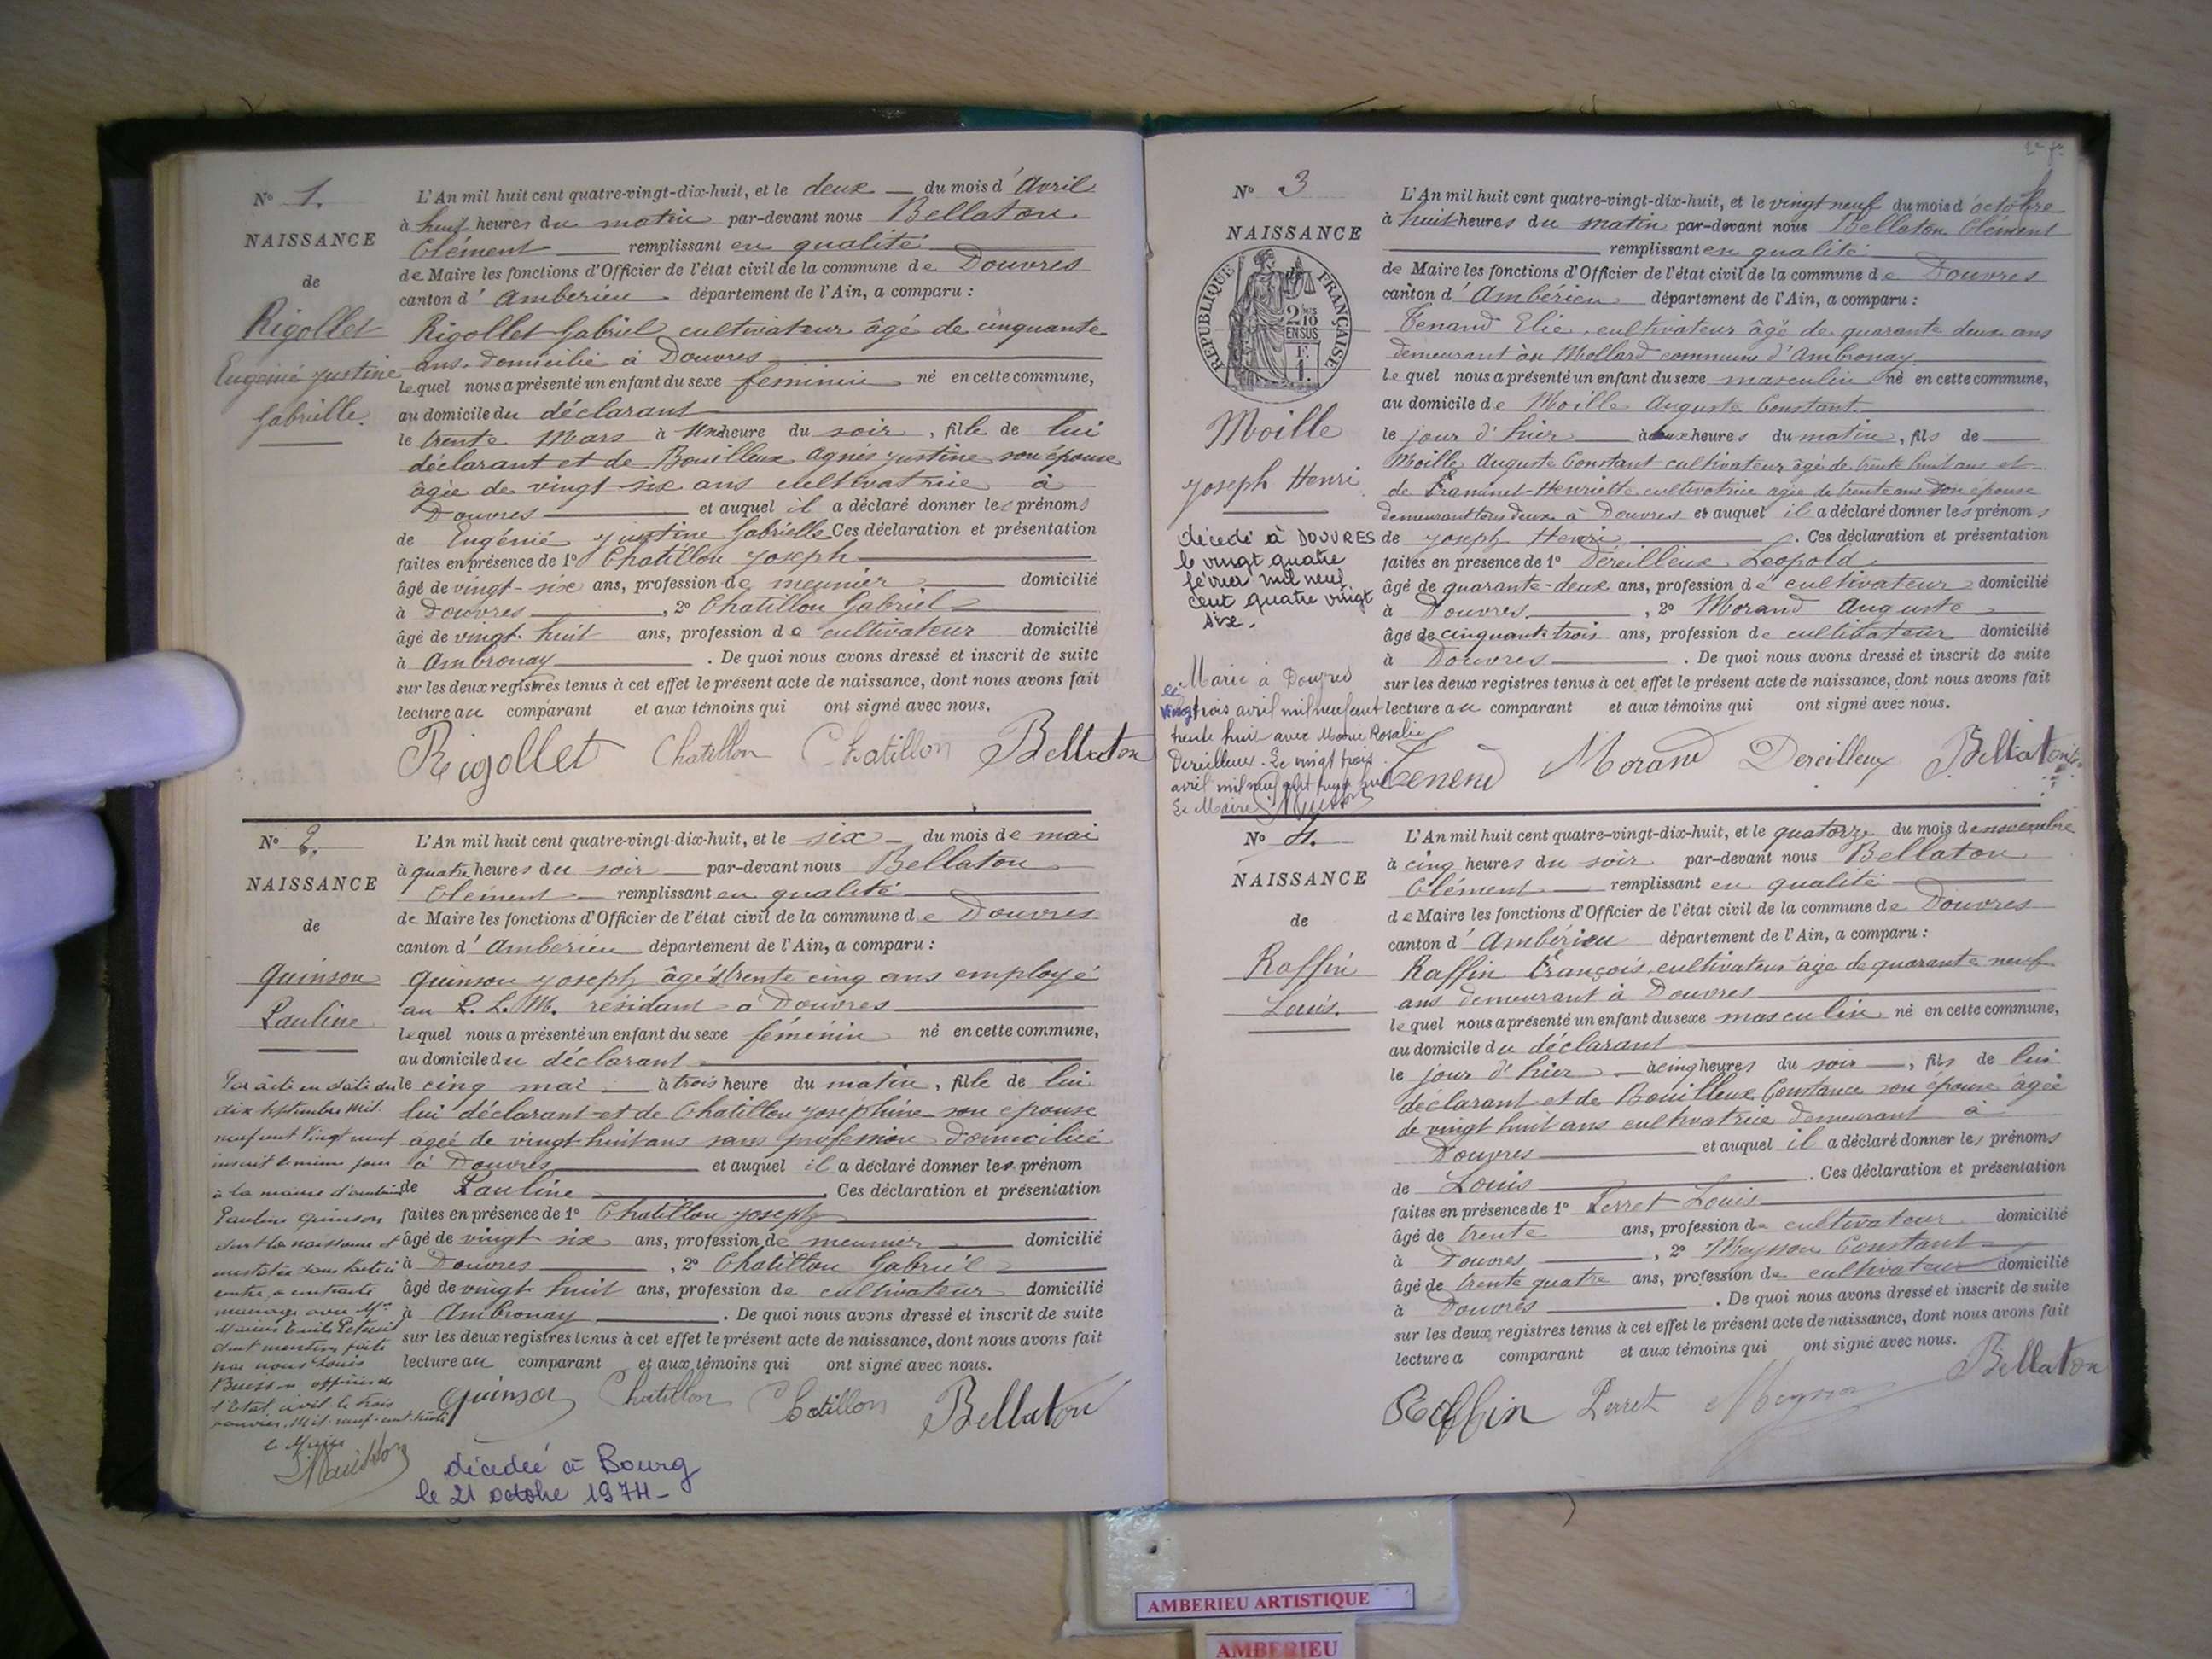 N° 1.
NAISSANCE
de
Rigollet
Eugénie Justine
Gabrielle.
L'An mil huit cent quatre-vingt-dix-huit, et le deux du mois d'Avril
à huit heures du matin par-devant nous Bellaton
Clément remplissant en qualité
de Maire les fonctions d'Officier de l'état civil de la commune de Douvres
canton d'Amberieu département de l'Ain, a comparu :
Rigollet Gabriel cultivateur âgé de cinquante
ans domicilié à Douvres
lequel nous a présenté un enfant du sexe feminin né en cette commune,
au domicile du déclarant
le trente Mars à Une heure du soir, fille de lui
déclarant et de Bouilleux Agnès Justine son épouse
âgée de vingt-six ans cultivatrice à
Douvres et auquel il a déclaré donner les prénoms
de Eugénié Justine Gabrielle Ces déclaration et présentation
faites en présence de 1° Chatillon Joseph
âgé de vingt-six ans, profession de meunier domicilié
à Douvres, 2° Chatillon Gabriel
âgé de vingt-huit ans, profession de cultivateur domicilié
à Ambronay. De quoi nous avons dressé et inscrit de suite
sur les deux registres tenus à cet effet le présent acte de naissance, dont nous avons fait
lecture au comparant et aux témoins qui ont signé avec nous.
Rigollet Chatillon Chatillon Bellaton
N° 2.
NAISSANCE
de
Quinson
Pauline
L'An mil huit cent quatre-vingt-dix-huit, et le six du mois de mai
à quatre heures du soir par-devant nous Bellaton
Clément remplissant en qualité
de Maire les fonctions d'Officier de l'état civil de la commune de Douvres
canton d'Amberieu département de l'Ain, a comparu :
Quinson Joseph âgé trente cinq ans employé
au P. L. M. résidant à Douvres
lequel nous a présenté un enfant du sexe féminin né en cette commune,
au domicile du déclarant
le cinq mai à trois heure du matin, fille de lui
lui déclarant et de Chatillon Joséphine son épouse
âgée de vingt-huit ans sans profession domiciliée
à Douvres et auquel il a déclaré donner les prénom
de Pauline Ces déclaration et présentation
faites en présence de 1° Chatillon Joseph
âgé de vingt-six ans, profession de meunier domicilié
à Douvres, 2° Chatillon Gabriel
âgé de vingt huit ans, profession de cultivateur domicilié
à Ambronay. De quoi nous avons dressé et inscrit de suite
sur les deux registres tenus à cet effet le présent acte de naissance, dont nous avons fait
lecture au comparant et aux témoins qui ont signé avec nous.
Quinson Chatillon Chatillon Bellaton
Par acte en date du
dix septembre mil
neuf cent vingt neuf
inscrit le même jour
à la mairie
Pauline Quinson
dont la naissance est
contre a contracté
mariage avec Mr
Marius Emile
dont mention faite
par nous Louis
Buisson officier de
l'Etat civil le trois
janvier mil neuf cent trente
le Maire
décédée à Bourg
le 21 octobre 1974-
N° 3
NAISSANCE
de
RÉPUBLIQUE FRANÇAISE
2/10
EN SUS
F.
1.
Moille
Joseph Henri
décédé à DOUVRES
le vingt quatre
février mil neuf
cent quatre vingt
six.
Marié à Douvres
le
vingt trois avril mil neuf cent
trente huit avec Marie Rosalie
Dereilleux. Le vingt trois
avril mil neuf cent trente huit
Le Maire
L'An mil huit cent quatre-vingt-dix-huit, et le vingt neuf du mois d'octobre
à huit heures du matin par-devant nous Bellaton Clément
remplissant en qualité
de Maire les fonctions d'Officier de l'état civil de la commune de Douvres
canton d'Ambérieu département de l'Ain, a comparu :
Tenand Elie, cultivateur âgé de quarante deux ans
demeurant au Mollard commune d'Ambronay
lequel nous a présenté un enfant du sexe masculin né en cette commune,
au domicile de Moille Auguste Constant
le jour d'hier à deux heures du matin, fils de
Moille Auguste Constant cultivateur âgé de trente huit ans et
de Framinet Henriette cultivatrice agée de trente ans son épouse
demeurant tous deux à Douvres et auquel il a déclaré donner les prénoms
de Joseph Henri. Ces déclaration et présentation
faites en présence de 1° Déreilleux Léopold
âgé de quarante-deux ans, profession de cultivateur domicilié
à Douvres, 2° Morand Auguste
âgé de cinquante trois ans, profession de cultivateur domicilié
à Douvres. De quoi nous avons dressé et inscrit de suite
sur les deux registres tenus à cet effet le présent acte de naissance, dont nous avons fait
lecture au comparant et aux témoins qui ont signé avec nous.
Tenend Morand Dereilleux Bellaton
N° 4.
NAISSANCE
de
Raffin
Louis.
L'An mil huit cent quatre-vingt-dix-huit, et le quatorze du mois de novembre
à cinq heures du soir par-devant nous Bellaton
Clément remplissant en qualité
de Maire les fonctions d'Officier de l'état civil de la commune de Douvres
canton d'Ambérieu département de l'Ain, a comparu :
Raffin François, cultivateur âgé de quarante neuf
ans demeurant à Douvres
lequel nous a présenté un enfant du sexe masculin né en cette commune,
au domicile du déclarant
le jour d'hier à cinq heures du soir, fils de lui
declarant et de Bouilleux Constance son épouse âgée
de vingt huit ans cultivatrice demeurant à
Douvres et auquel il a déclaré donner les prénoms
de Louis. Ces déclaration et présentation
faites en présence de 1° Perret Louis
âgé de trente ans, profession de cultivateur domicilié
à Douvres, 2° Meysson Constant
âgé de trente quatre ans, profession de cultivateur domicilié
à Douvres. De quoi nous avons dressé et inscrit de suite
sur les deux registres tenus à cet effet le présent acte de naissance, dont nous avons fait
lecture a comparant et aux témoins qui ont signé avec nous.
Raffin Perret Meysson Bellaton
AMBERIEU ARTISTIQUE
AMBERIEU